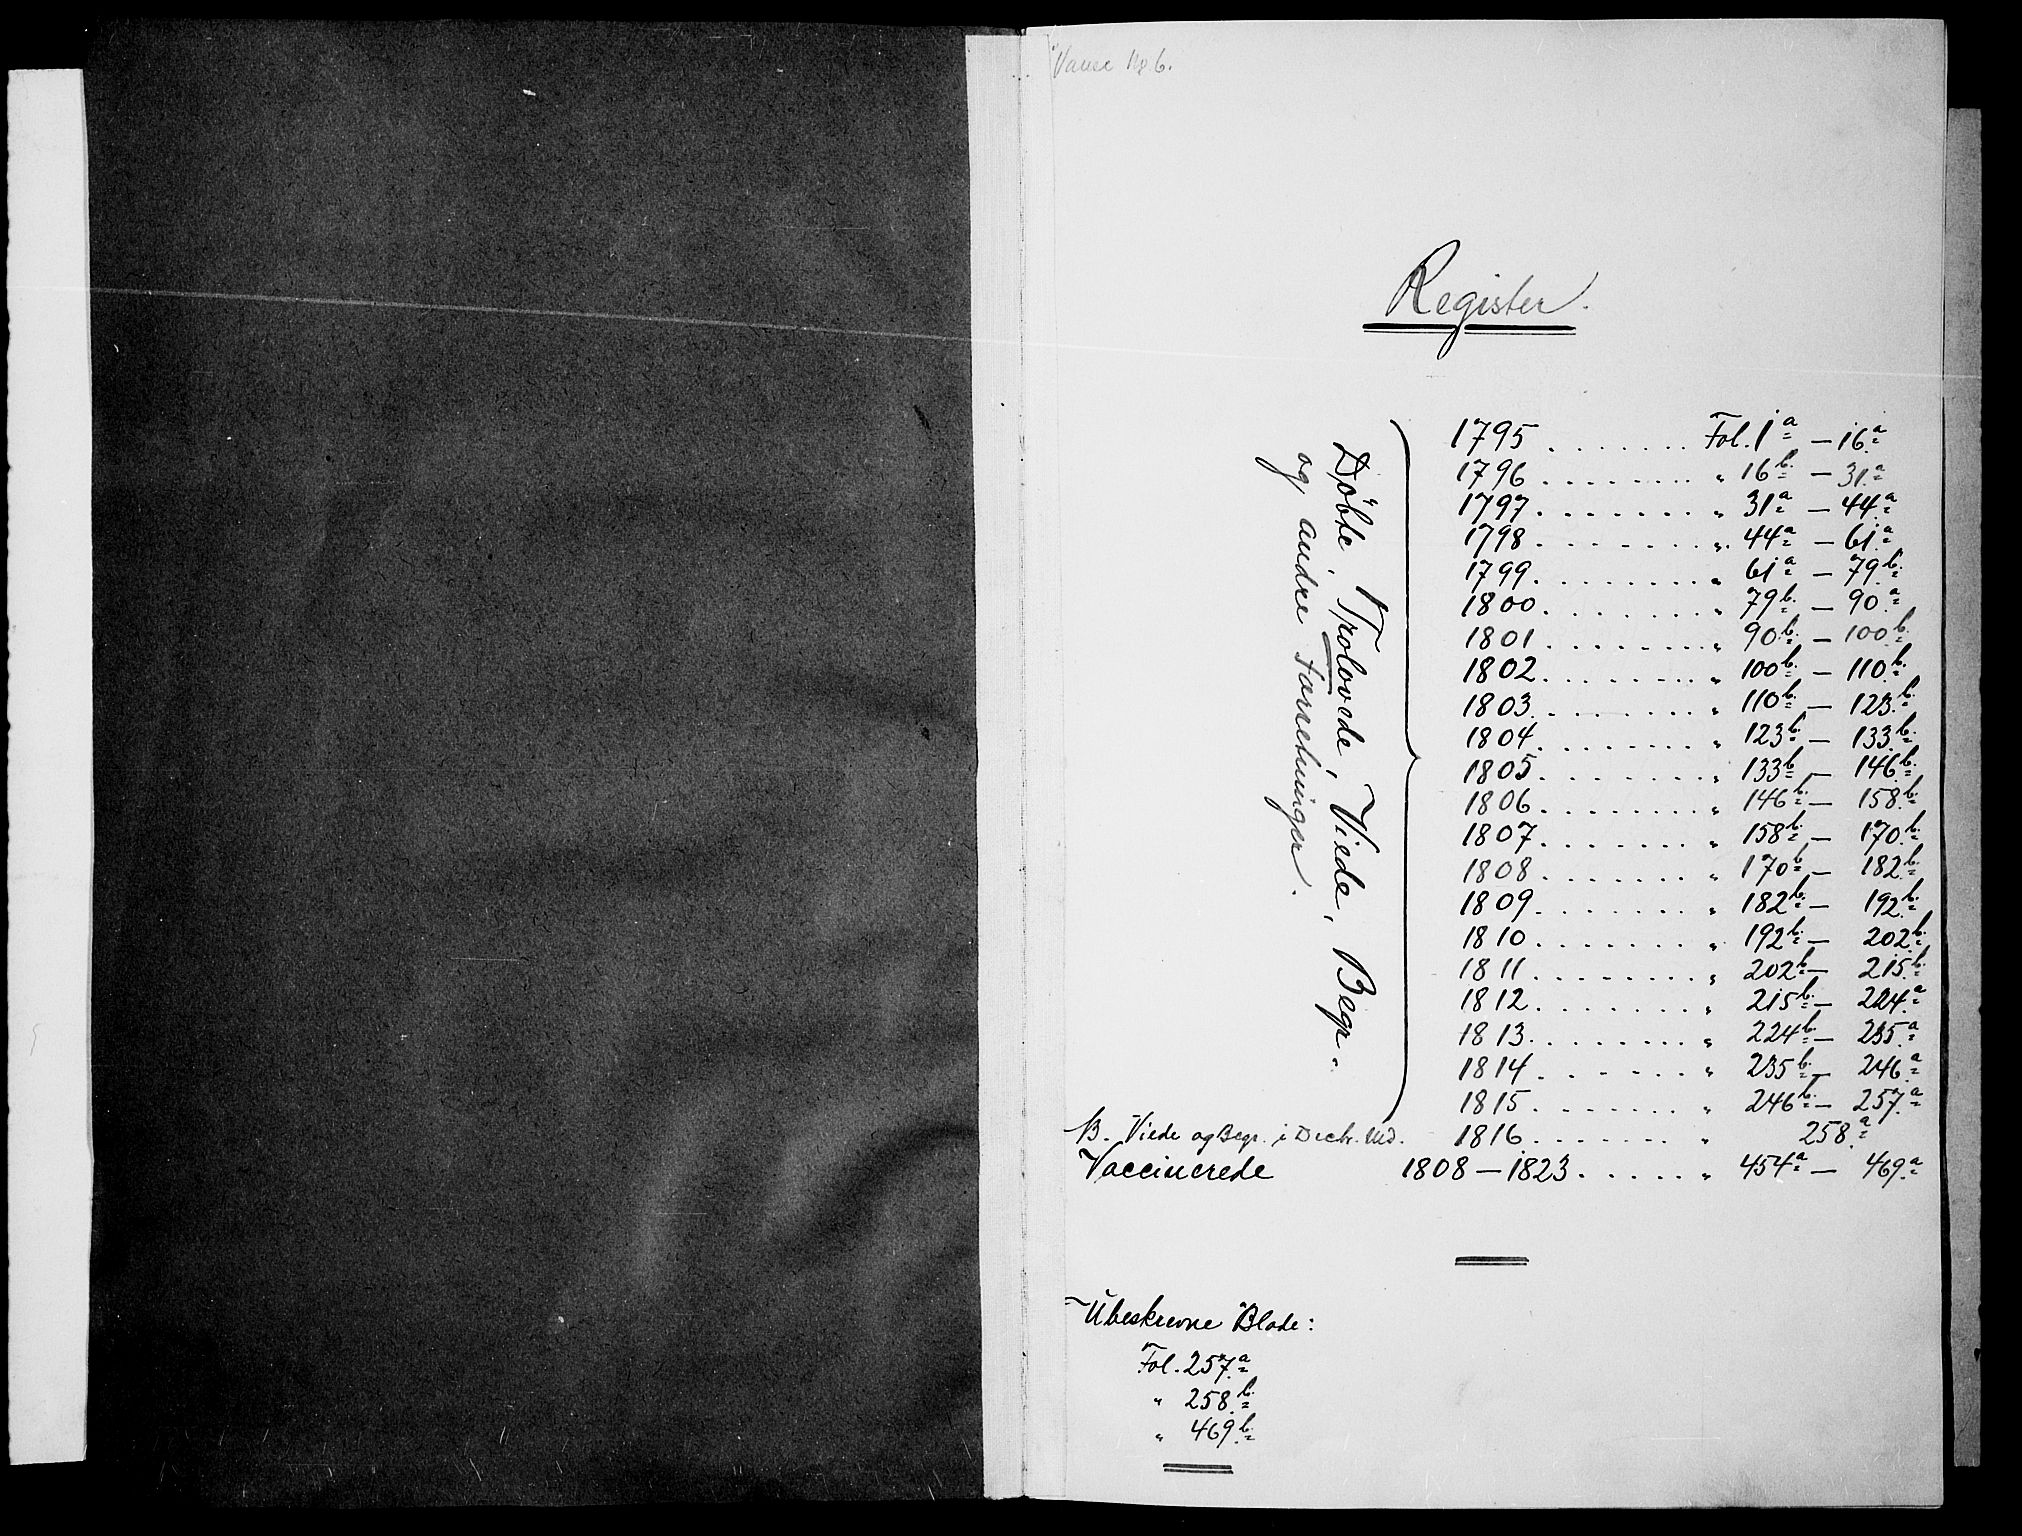 Vanse No 6.
Register.
Døbte, Trolovede, Viede, Begr.
og andre Forretninger.
1795 . . . . . . . Fol. 1a – 16a
1796 . . . . . . . . " 16b – 31a
1797 . . . . . . . . " 31a – 44a
1798 . . . . . . . . " 44a – 61a
1799 . . . . . . . . " 61a – 79b
1800 . . . . . . . . " 79b – 90a
1801 . . . . . . . . " 90b – 100b
1802 . . . . . . . . " 100b – 110b
1803 . . . . . . . . " 110b – 123b
1804 . . . . . . . . " 123b – 133b
1805 . . . . . . . . " 133b – 146b
1806 . . . . . . . . " 146b – 158b
1807 . . . . . . . . " 158b – 170b
1808 . . . . . . . . " 170b – 182b
1809 . . . . . . . . " 182b – 192b
1810 . . . . . . . . " 192b – 202b
1811 . . . . . . . . " 202b – 215b
1812 . . . . . . . . " 215b – 224a
1813 . . . . . . . . " 224b – 235a
1814 . . . . . . . . " 235b – 246a
1815 . . . . . . . . " 246b – 257a
B. Viede og Begr. i Decbr. Md. 1816 . . . . . . . " 258a
Vaccinerede 1808 – 1823 . . . . . . " 454a – 469a
Ubeskrevne Blade:
Fol. 257a
" 258b
" 469b